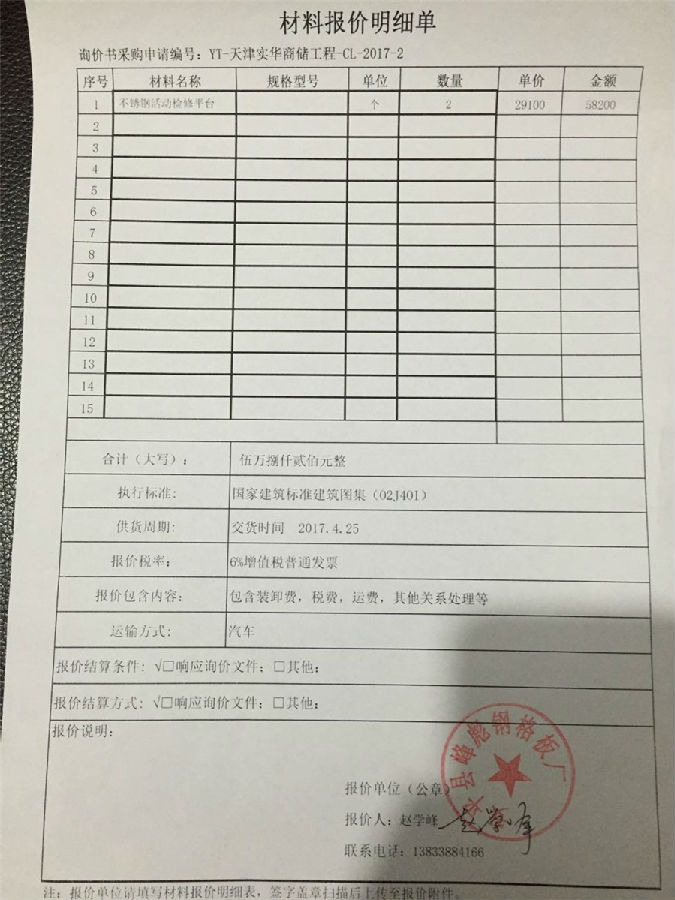 材料报价明细单
询价书采购申请编号：YT-天津实华商储工程-CL-2017-2
序号 材料名称 规格型号 单位 数量 单价 金额
1 不锈钢活动检修平台 个 2 29100 58200
2
3
4
5
6
7
8
9
10
11
12
13
14
15
合计（大写）： 伍万捌仟贰佰元整
执行标准: 国家建筑标准建筑图集（02J401）
供货周期: 交货时间 2017.4.25
报价税率: 6%增值税普通发票
报价包含内容: 包含装卸费，税费，运费，其他关系处理等
运输方式: 汽车
报价结算条件: √□响应询价文件; □其他:
报价结算方式: √□响应询价文件; □其他:
报价说明:
县峰彪钢格板厂
报价单位（公章）
报价人: 赵学峰 赵学峰
联系电话: 13833884166
注: 报价单位请填写材料报价明细表，签字盖章扫描后上传至报价附件。